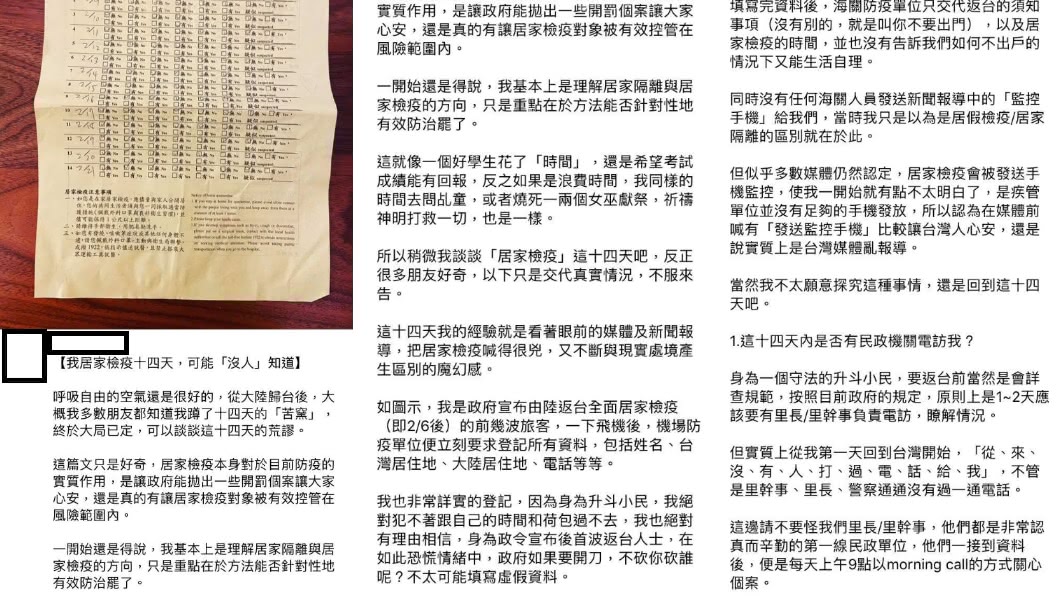 居家檢疫注意事項
【我居家檢疫十四天，可能「沒人」知道】
呼吸自由的空氣還是很好的，從大陸歸台後，大
概我多數朋友都知道我蹲了十四天的「苦窯」，
終於大局已定，可以談談這十四天的荒謬。
這篇文只是好奇，居家檢疫本身對於目前防疫的
實質作用，是讓政府能拋出一些開罰個案讓大家
心安，還是真的有讓居家檢疫對象被有效控管在
風險範圍內。
一開始還是得說，我基本上是理解居家隔離與居
家檢疫的方向，只是重點在於方法能否針對性地
有效防治罷了。
實質作用，是讓政府能拋出一些開罰個案讓大家
心安，還是真的有讓居家檢疫對象被有效控管在
風險範圍內。
一開始還是得說，我基本上是理解居家隔離與居
家檢疫的方向，只是重點在於方法能否針對性地
有效防治罷了。
這就像一個好學生花了「時間」，還是希望考試
成績能有回報，反之如果是浪費時間，我同樣的
時間去問乩童，或者燒死一兩個女巫獻祭，祈禱
神明打救一切，也是一樣。
所以稍微我談談「居家檢疫」這十四天吧，反正
很多朋友好奇，以下只是交代真實情況，不服來
告。
這十四天我的經驗就是看著眼前的媒體及新聞報
導，把居家檢疫喊得很兇，又不斷與現實處境產
生區別的魔幻感。
如圖示，我是政府宣布由陸返台全面居家檢疫
（即2/6後）的前幾波旅客，一下飛機後，機場防
疫單位便立刻要求登記所有資料，包括姓名、台
灣居住地、大陸居住地、電話等等。
我也非常詳實的登記，因為身為升斗小民，我絕
對犯不著跟自己的時間和荷包過不去，我也絕對
有理由相信，身為政令宣布後首波返台人士，在
如此恐慌情緒中，政府如果要開刀，不砍你砍誰
呢？不太可能填寫虛假資料。
填寫完資料後，海關防疫單位只交代返台的須知
事項（沒有別的，就是叫你不要出門），以及居
家檢疫的時間，並也沒有告訴我們如何不出戶的
情況下又能生活自理。
同時沒有任何海關人員發送新聞報導中的「監控
手機」給我們，當時我只是以為是居假檢疫/居家
隔離的區別就在於此。
但似乎多數媒體仍然認定，居家檢疫會被發送手
機監控，使我一開始就有點不太明白了，是疾管
單位並沒有足夠的手機發放，所以認為在媒體前
喊有「發送監控手機」比較讓台灣人心安，還是
說實質上是台灣媒體亂報導。
當然我不太願意探究這種事情，還是回到這十四
天吧。
1.這十四天內是否有民政機關電訪我？
身為一個守法的升斗小民，要返台前當然是會詳
查規範，按照目前政府的規定，原則上是1~2天應
該要有里長/里幹事負責電訪，瞭解情況。
但實質上從我第一天回到台灣開始，「從、來、
沒、有、人、打、過、電、話、給、我」，不管
是里幹事、里長、警察通通沒有過一通電話。
這邊請不要怪我們里長/里幹事，他們都是非常認
真而辛勤的第一線民政單位，他們一接到資料
後，便是每天上午9點以morning call的方式關心
個案。